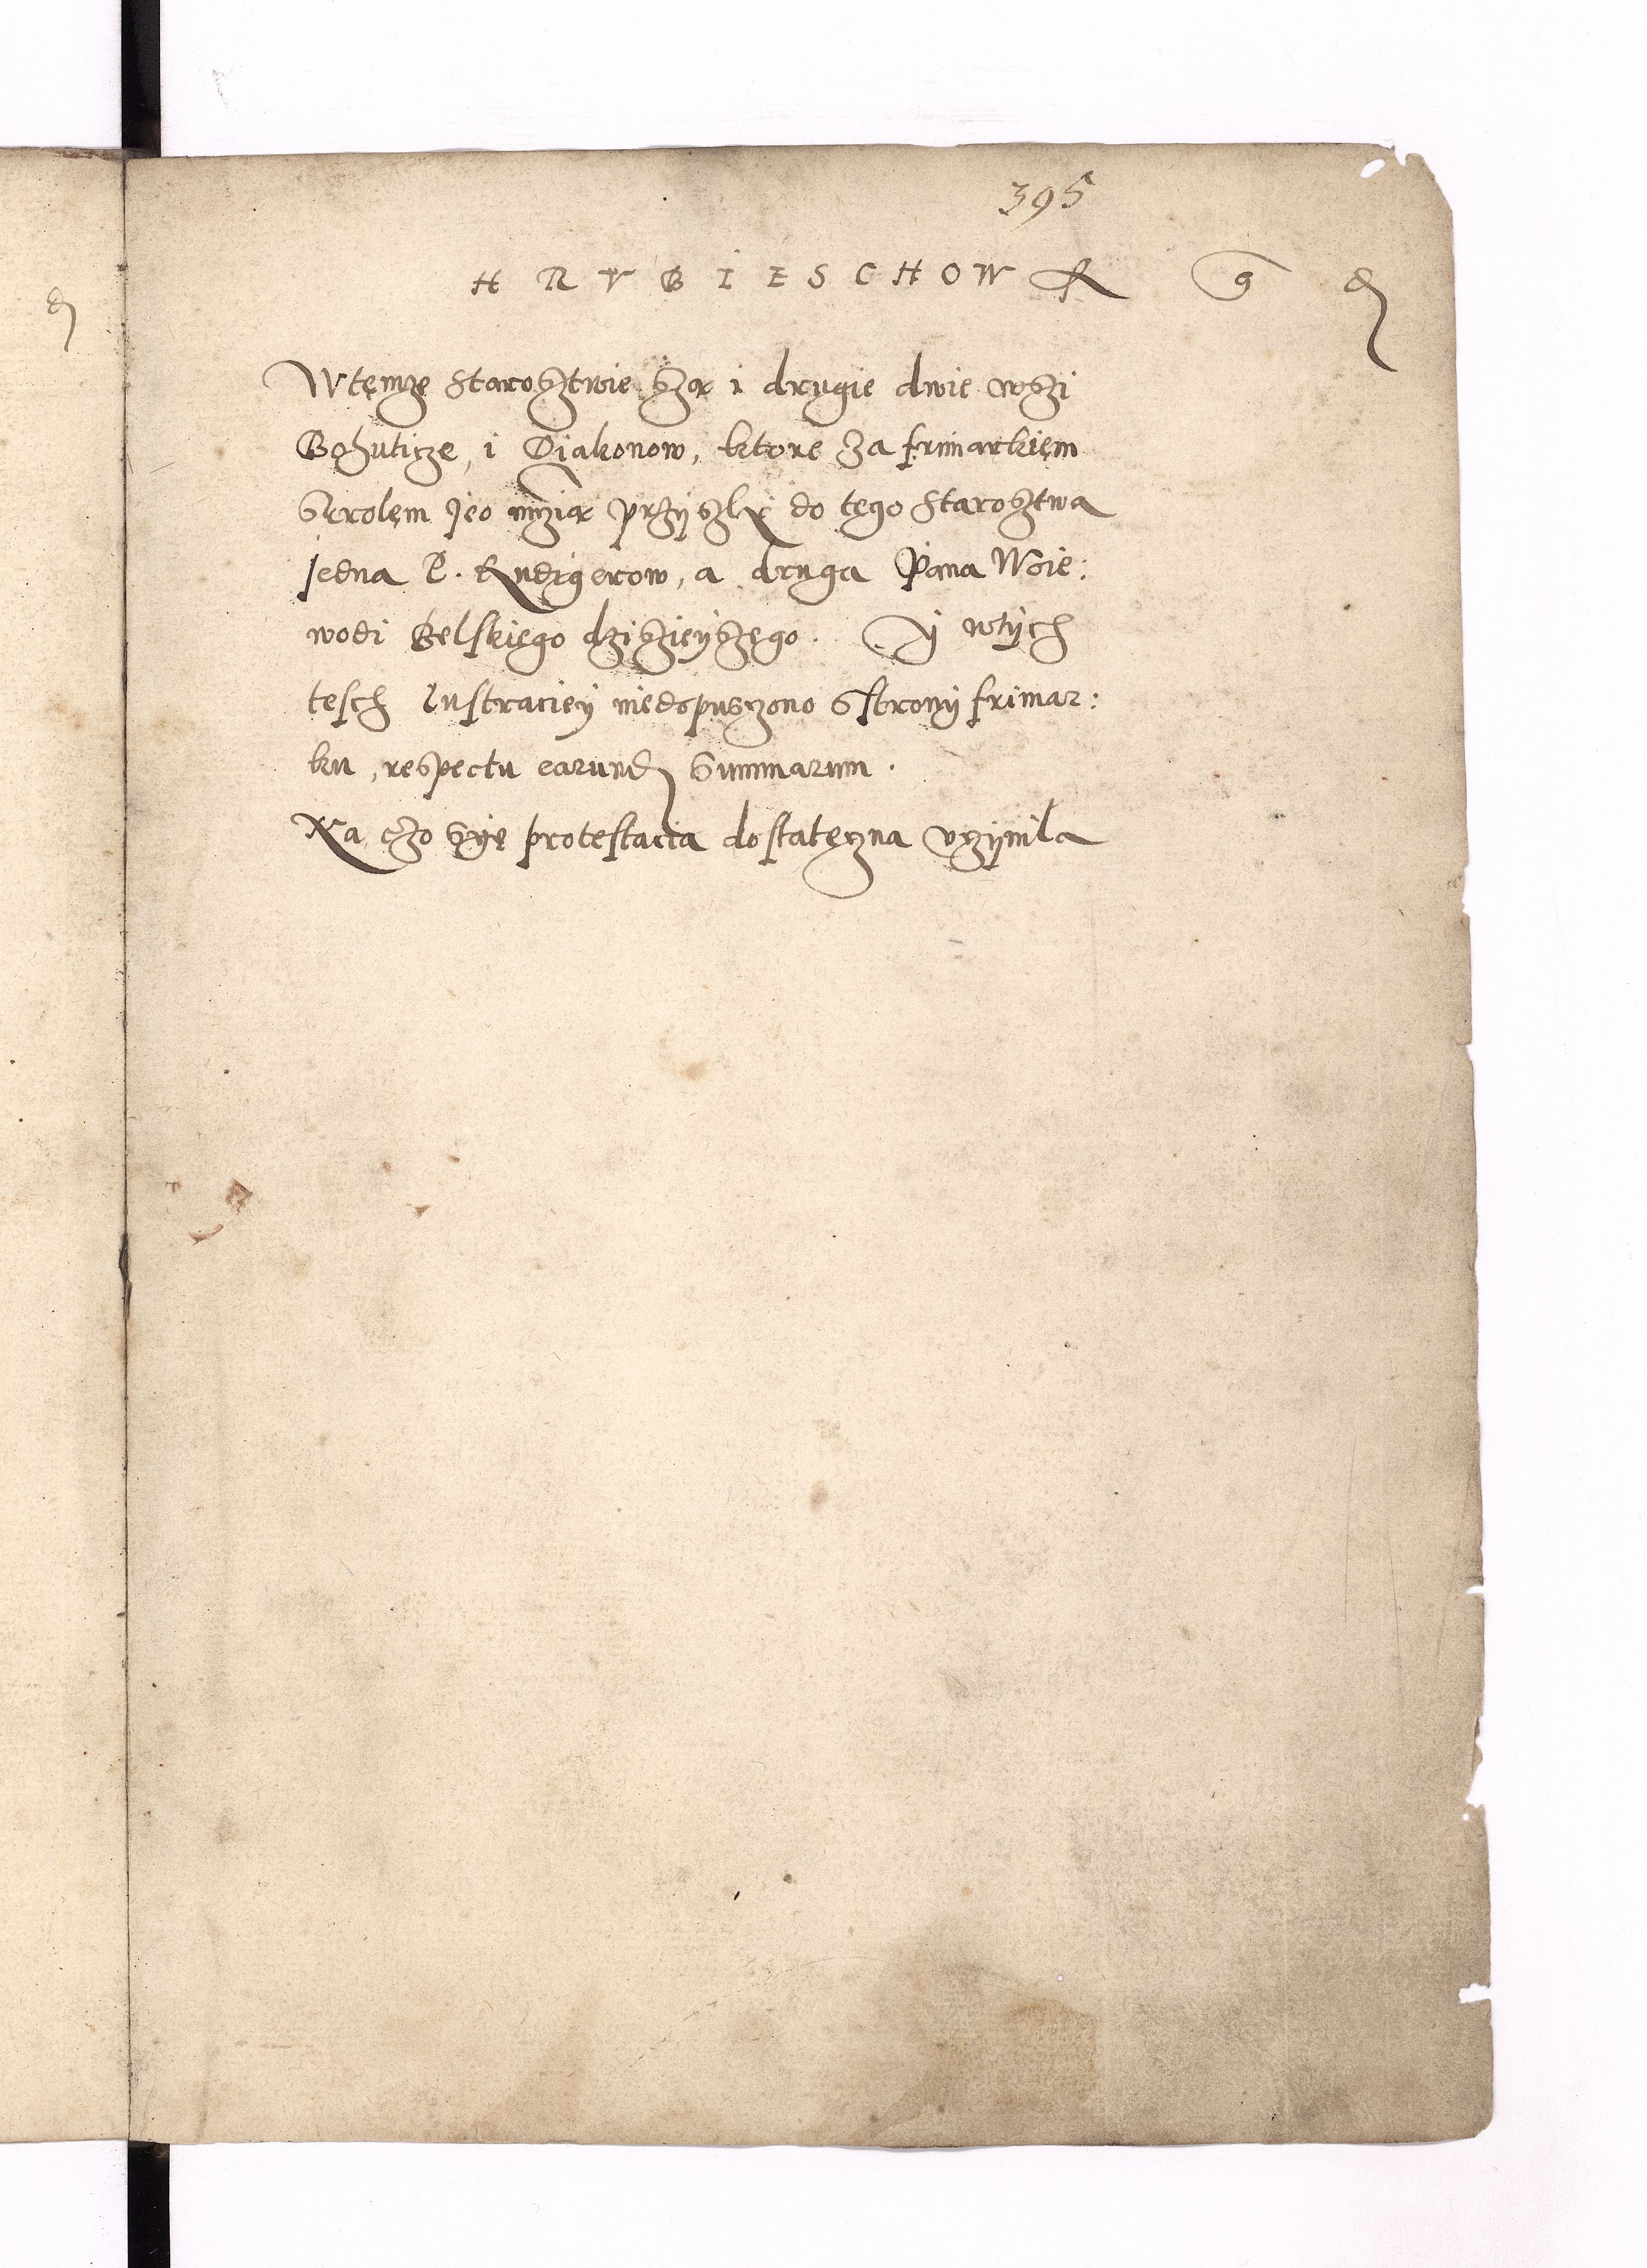 395
HRVBIESCHOW R g đ
Wtęmze starosztwie szą i drugie dwie wszi
Bohuticze, i Diakonow, ktore za frimarkięm
Skrolęm Jeo mczią przyszly do tęgo starosztwa
jedna P. Rudigerow, a druga Pana Woie:
wodi Belskięgo dziszieyszęgo. Y wtych
tesch lustraciey niedopusczono sstrony frimar:
ku, respectu earund summarum.
Na czo syę protestacia dostatęczna vczynila